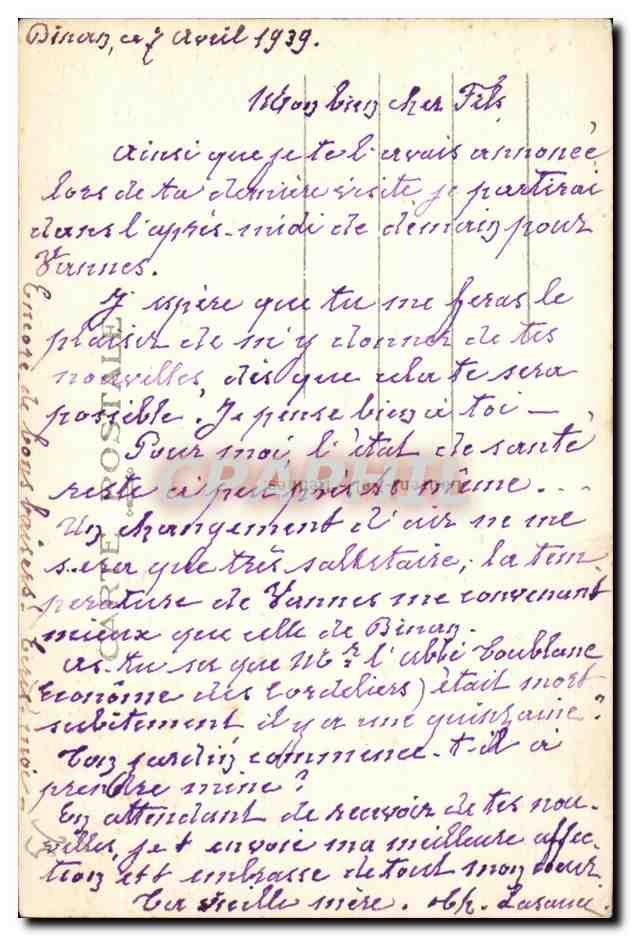 Dinan, ce 7 Avril 1939.
Mon bien cher Fils
Ainsi que je te l'avais annoncé
lors de ta dernière visite je partirai
dans l'après-midi de demain pour
Vannes.
J'espère que tu me feras le
plaisir de m'y donner de tes
nouvelles, dès que cela te sera
possible. Je pense bien à toi —
Pour moi, l'état de santé
reste à peu près le même...
Un changement d'air ne me
sera que très salutaire, la tem-
pérature de Vannes me convenant
mieux que celle de Dinan.
As-tu su que Mr. l'abbé Toublanc
Econôme des Cordeliers) était mort
subitement il y a une quinzaine?
Ton jardin commence-t-il à
prendre mine?
En attendant de recevoir de tes nou-
velles, je t'envoie ma meilleure affec-
tion et t'embrasse de tout mon cœur
Ta vieille mère.
Encore de bons baisers!
CARTE POSTALE
CPAPHIL